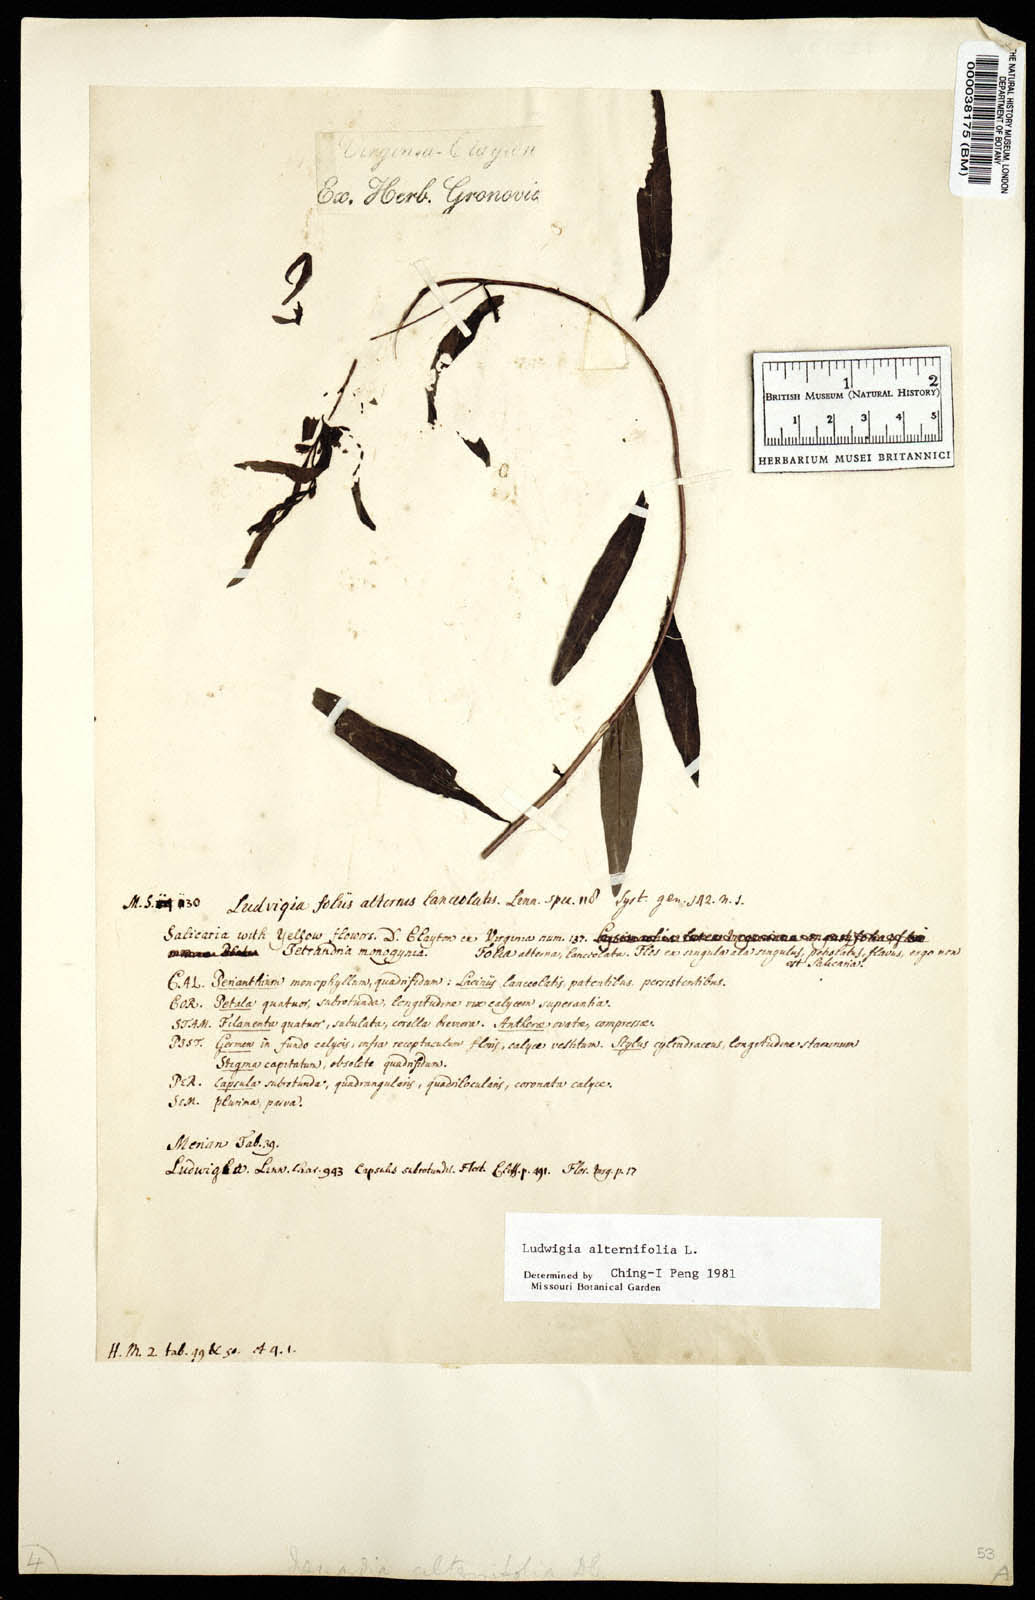 THE NATURAL HISTORY MUSEUM, LONDON
DEPARTMENT OF BOTANY
000038175 (BM)
Virginia. Clayton
Ex. Herb. Gronovii
1 2
BRITISH MUSEUM (NATURAL HISTORY)
1 2 3 4 5
HERBARIUM MUSEI BRITANNICI
M.S. 1130 Ludvigia foliis alternis lanceolatis. Linn. spec. 118 Syst. gen. 142. n. 1.
Salicaria with Yellow flowers. D. Clayton ex Virginia num. 137.
Tetrandria monogynia. Folia alterna, lanceolata. Flos ex singula ala singulus, petiolatus, flavus, ergo non
est Salicaria.
CAL. Perianthium monophyllum, quadrifidum: Laciniis lanceolatis, patentibus, persistentibus.
COR. Petala quatuor, subrotunda, longitudine vix calycem superantia.
STAM. Filamenta quatuor, subulata, corolla breviora. Antheræ ovatæ, compressæ.
PIST. Germen in fundo calycis, infra receptaculum floris, calyce vestitum. Stylus cylindraceus, longitudine staminum
Stigma capitatum, obsolete quadrifidum.
PER. Capsula subrotunda, quadrangularis, quadrilocularis, coronata calyce.
SEM. plurima, parva.
Merian Tab. 39.
Ludwigia. Linn. Char. 943 Capsulis subrotundis. Hort. Cliff. p. 491. Flor. Virg. p. 17
Ludwigia alternifolia L.
Determined by Ching-I Peng 1981
Missouri Botanical Garden
H. M. 2 tab. 49 & 50. et 9. 1.
4
alternifolia
53
A